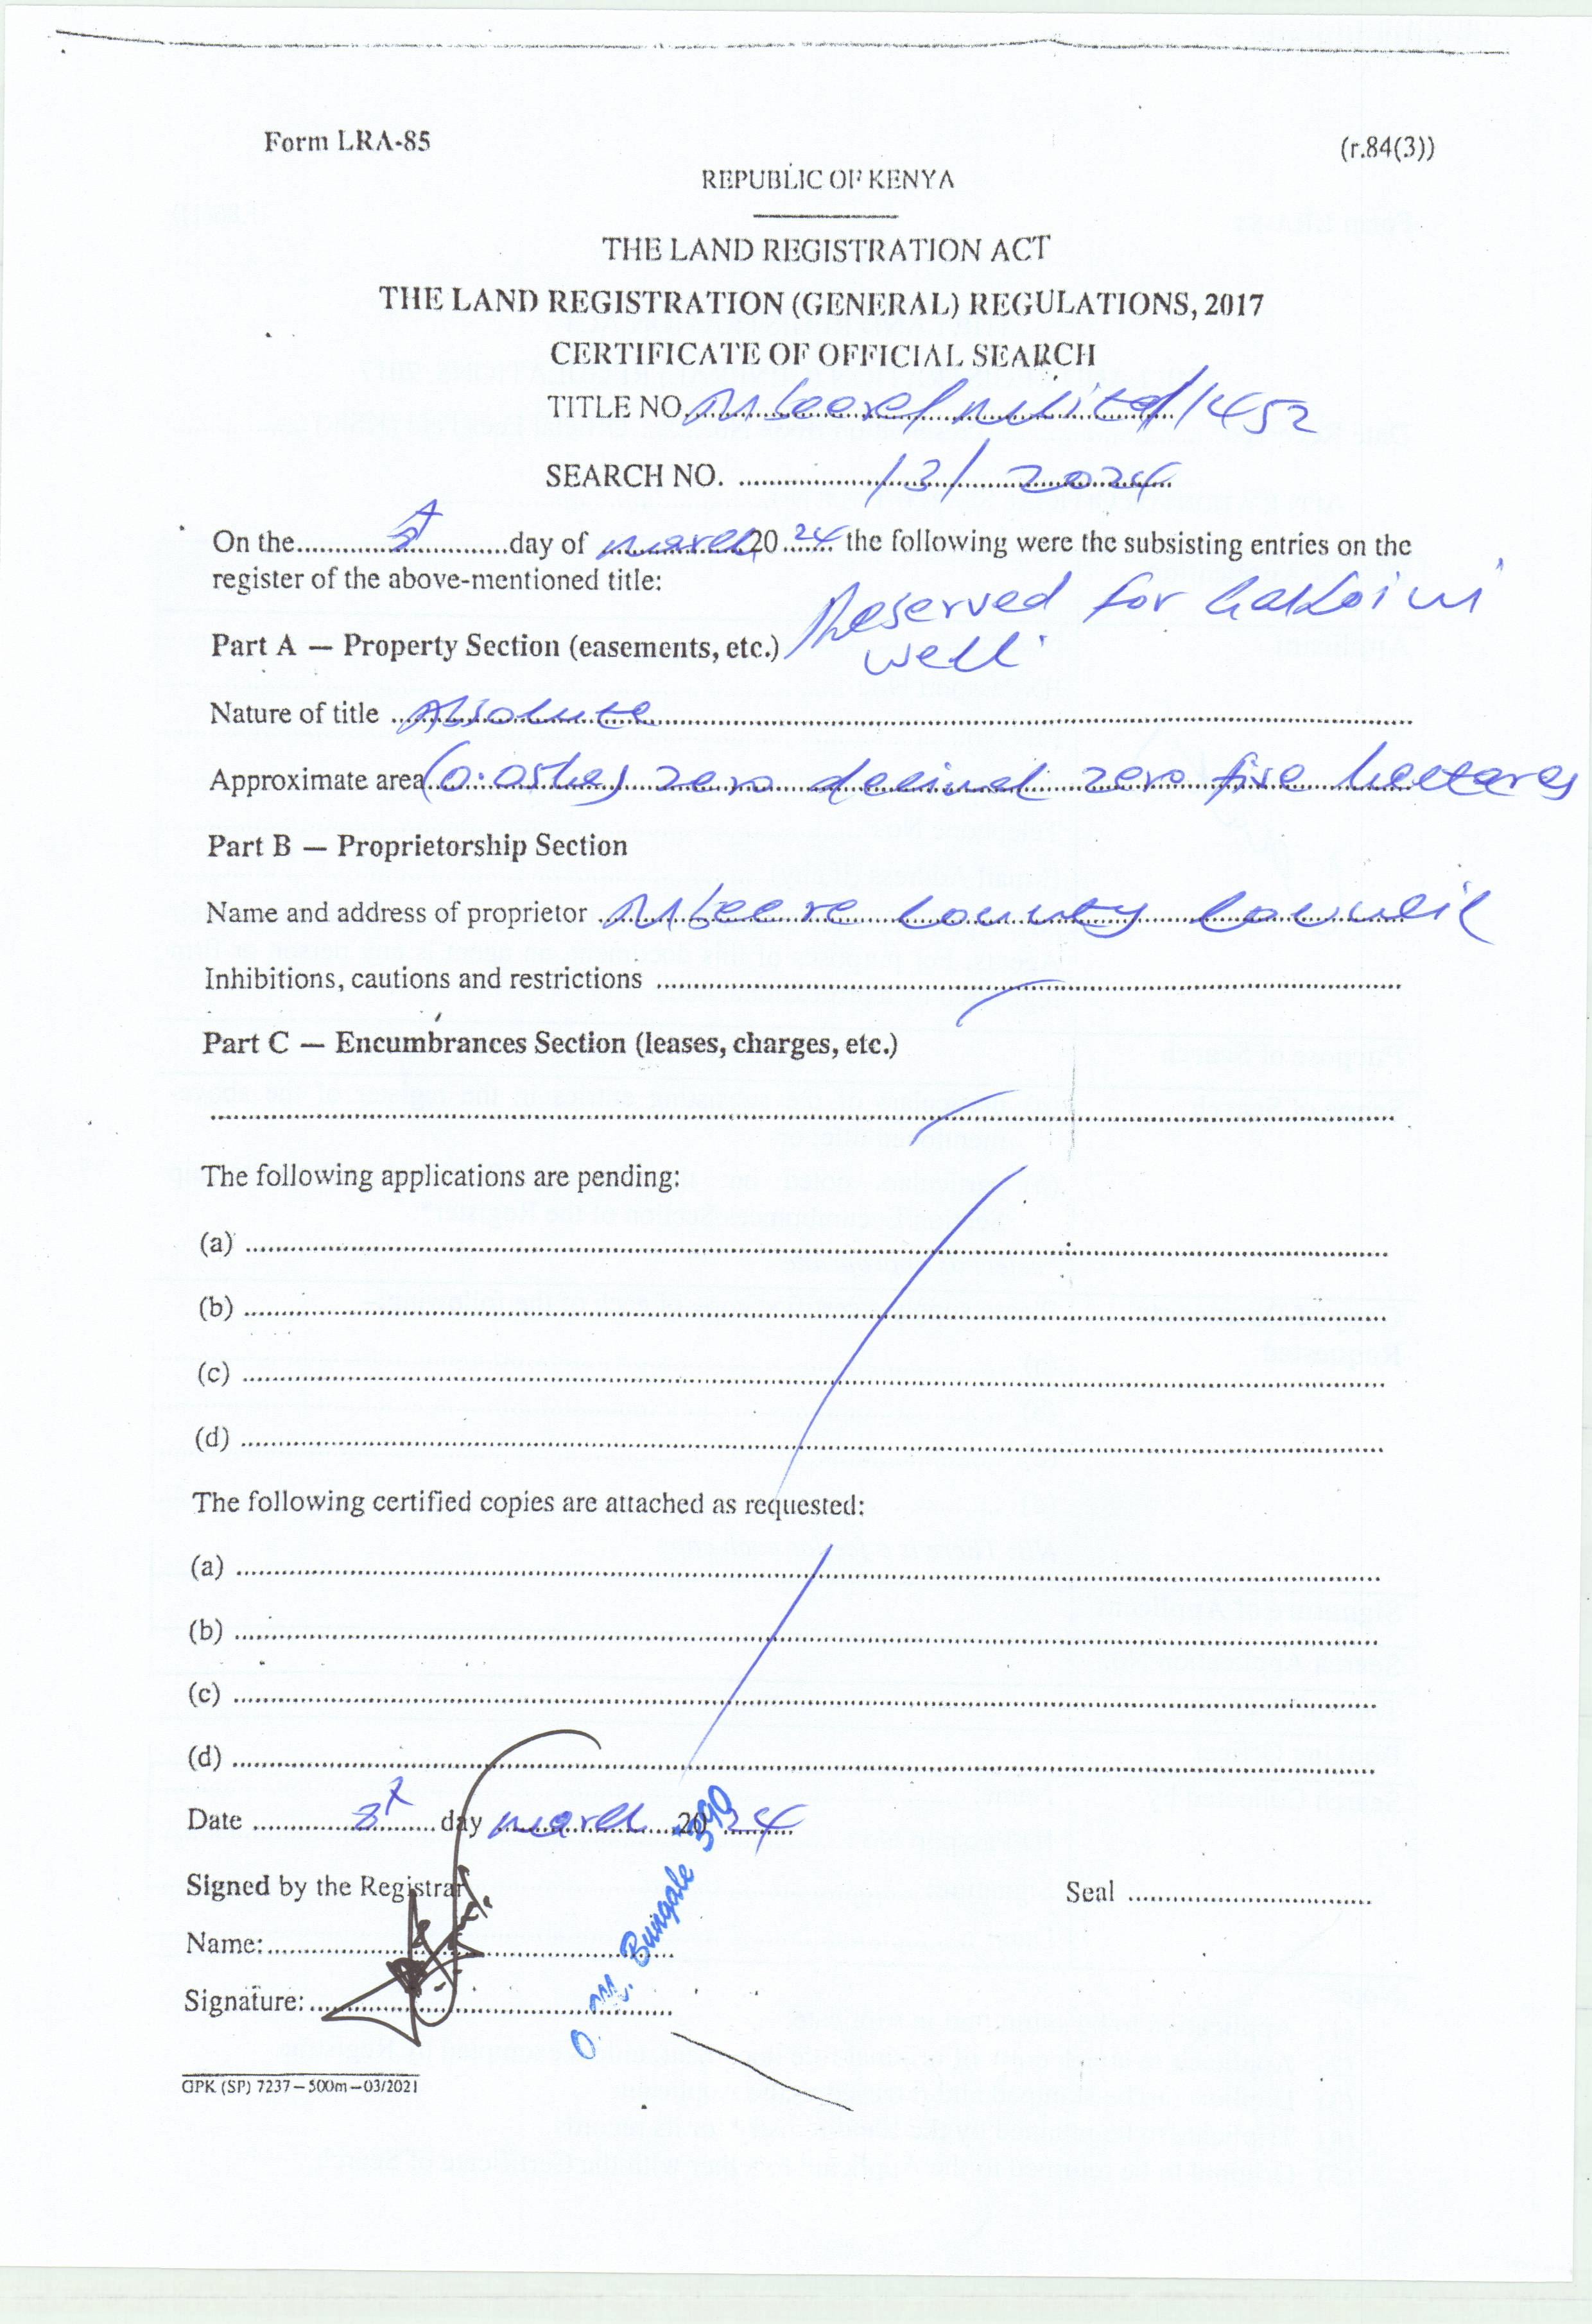 Form LRA-85
(r.84(3))
REPUBLIC OF KENYA
THE LAND REGISTRATION ACT
THE LAND REGISTRATION (GENERAL) REGULATIONS, 2017
CERTIFICATE OF OFFICIAL SEARCH
TITLE NO. Mbeere/ /1452
SEARCH NO. /3/2024
On the day of march 2024 the following were the subsisting entries on the
register of the above-mentioned title:
Reserved for
Part A — Property Section (easements, etc.) well
Nature of title Absolute
Approximate area (0.05ha) zero decimal zero five hectares
Part B — Proprietorship Section
Name and address of proprietor Mbeere County Council
Inhibitions, cautions and restrictions
Part C — Encumbrances Section (leases, charges, etc.)
The following applications are pending:
(a)
(b)
(c)
(d)
The following certified copies are attached as requested:
(a)
(b)
(c)
(d)
Date day march 2024
Signed by the Registrar
Seal
Name:
Signature:
O. M. Bungale 390
GPK (SP) 7237—500m—03/2021